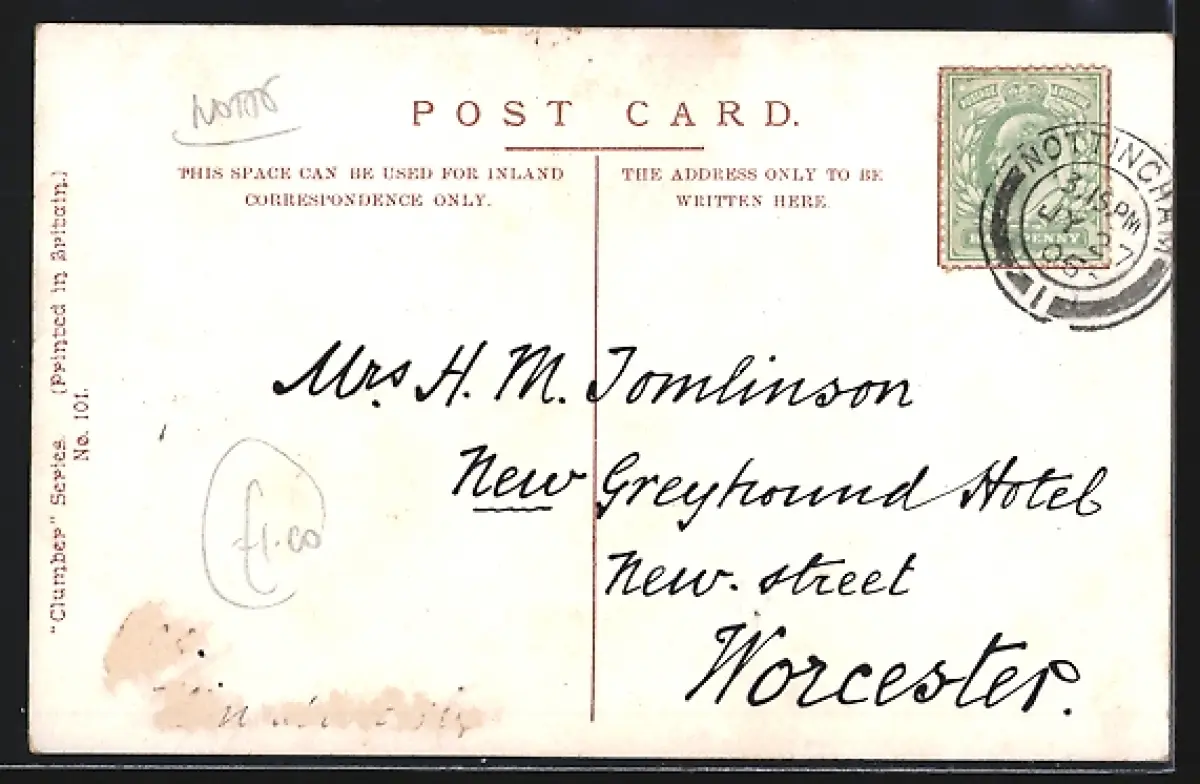 POST CARD.
THIS SPACE CAN BE USED FOR INLAND
CORRESPONDENCE ONLY.
THE ADDRESS ONLY TO BE
WRITTEN HERE.
NOTTS
"Clumber" Series. (Printed in Britain.)
No. 101.
HALFPENNY
NOTTINGHAM
3.15 PM
JY 27
06
11
Mrs H. M. Tomlinson
New Greyhound Hotel
New. street
Worcester.
£1.00